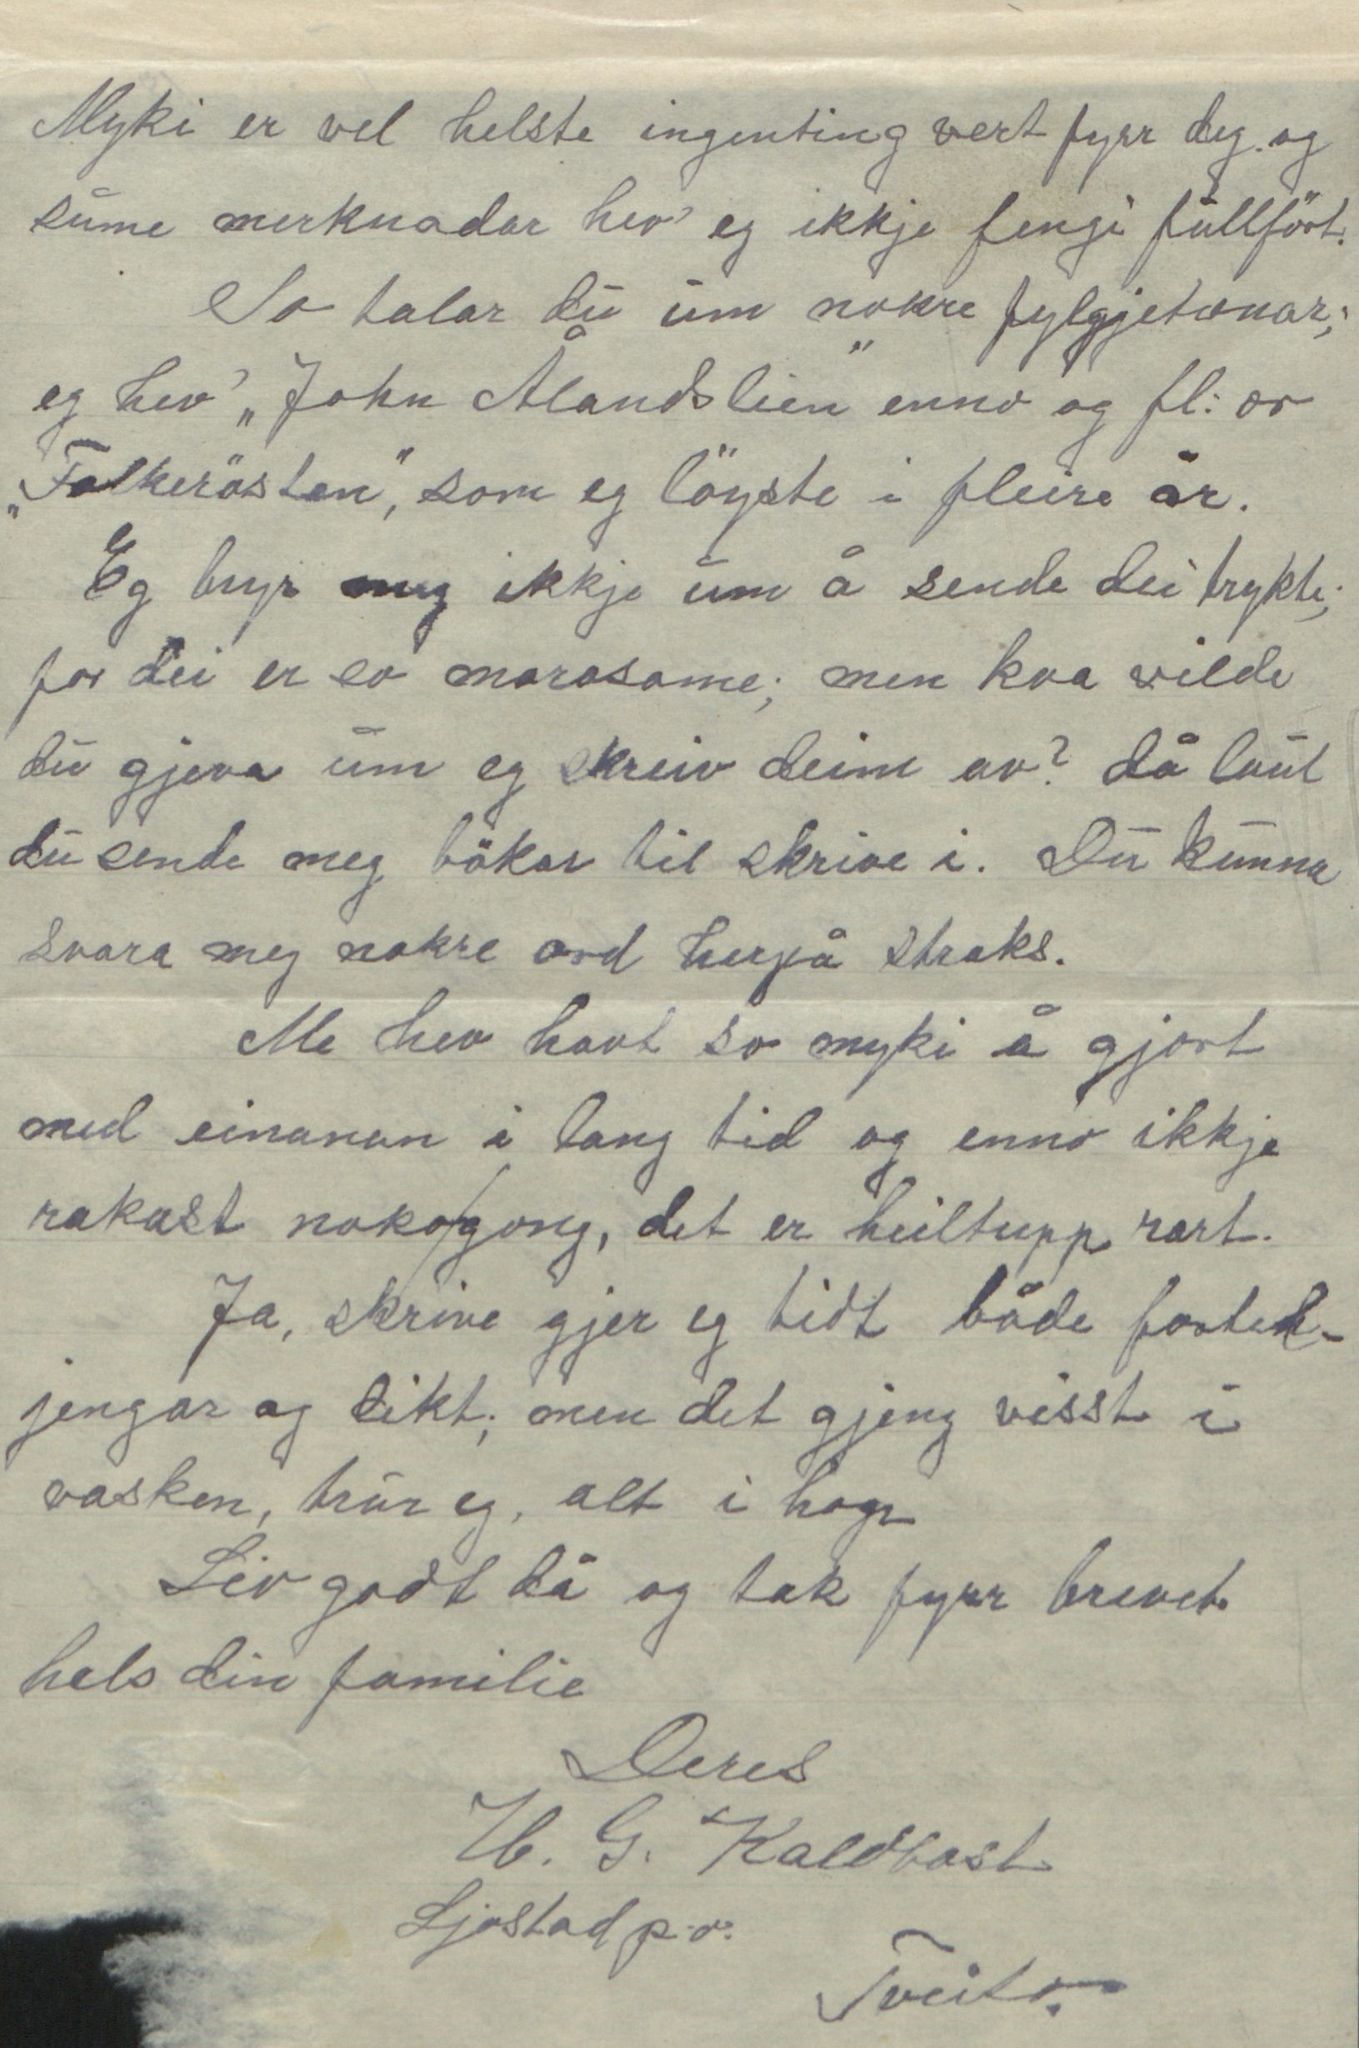 Myki er vel helste ingenting vert fyrr deg. og
sume merknadar hev' eg ikkje fengi fullfört.
So talar du um nokre fylgjetonar;
eg hev' „John Ålandslien" enno og fl: or
„Folkerösten", som eg löyste i fleire år.
Eg bryr meg ikkje um å sende dei trykte;
for dei er so morosome; men kva vilde
du gjeva um eg skreiv deim av? då laut
du sende meg bökar til skrive i. Du kunna
svara meg nokre ord herpå straks.
Me hev havt so myki å gjort
med einanan i lang tid og enno ikkje
rakast noko gong, det er heiltupp rart.
Ja, skrive gjer eg tidt både forteh-
jengar og dikt; men det gjeng visst i
vasken, trur eg, alt i hop
Liv godt då og tak fyrr brevet.
hels din familie
Deres
H. G. Kaldbast
Ljostad p.o.
Tveito.